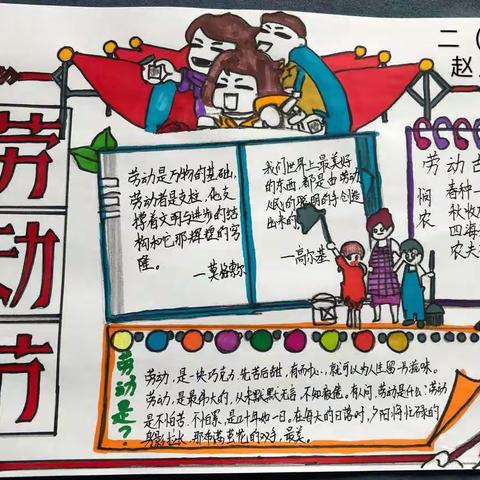 劳动节
二（
赵
劳动是万物的基础，
劳动者是支柱，他支
撑着文明与进步的结
构和它那辉煌的穹
隆。
—莫格索尔
我们世界上最美好
的东西，都是由劳动、
人的聪明的手创造
出来的。
—高尔基
劳动古
悯农
春种一
秋收
四海
农夫
劳动是？
劳动，是一块巧克力，先苦后甜，有
就可以为人生留一片滋味。
劳动，是最伟大的，从来默默无言，不知疲倦。有人问，劳动是什么？劳动
是不怕苦、不怕累，是日日年年如一日。在每天的日落时，夕阳将忙碌的
身影拉长，那布满茧花的双手，最美。